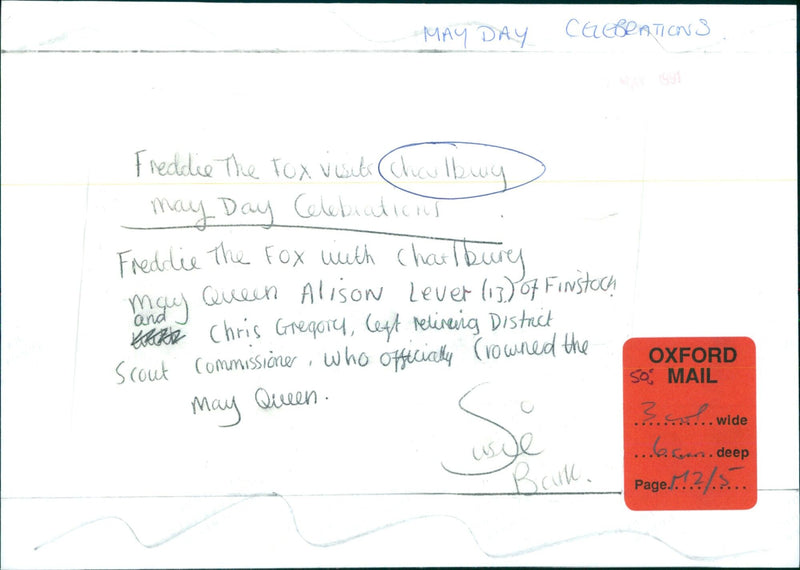 MAY DAY CELEBRATIONS
MAY 1991
Freddie The Fox visits Charlbury
May Day Celebrations
Freddie The Fox with Charlbury
May Queen Alison Lever (13) of Finstock
and
Chris Gregory, left retireing District
Scout Commissioner, who officially Crowned the
May Queen.
Susie
OXFORD
50% MAIL
3 col wide
6cm deep
Page M2/5